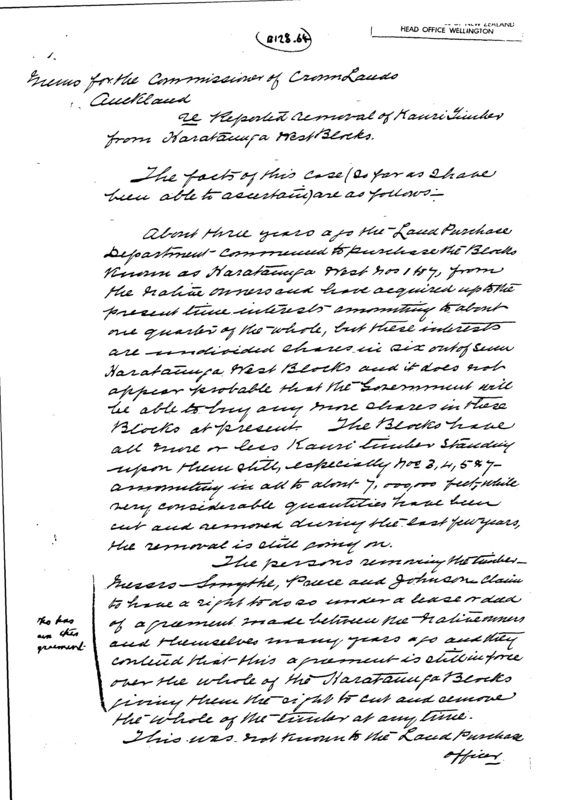 B128.64
NEW ZEALAND
HEAD OFFICE WELLINGTON
Memo for the Commissioner of Crown Lands
Auckland
re Reported removal of Kauri Timber
from Harataunga West Blocks.
The facts of this case (so far as I have
been able to ascertain) are as follows:-
About three years ago the Land Purchase
Department commenced to purchase the Blocks
known as Harataunga West Nos 1 to 7, from
the Native owners and have acquired up to the
present time interests amounting to about
one quarter of the whole, but these interests
are undivided shares in six out of seven
Harataunga West Blocks and it does not
appear probable that the Government will
be able to buy any more shares in these
Blocks at present. The Blocks have
all more or less Kauri timber standing
upon them still, especially Nos 3, 4, 5 & 7-
amounting in all to about 7,000,000 feet, while
very considerable quantities have been
cut and removed during the last few years,
the removal is still going on.
The persons removing the timber-
Messrs Smythe, and Johnson claim
to have a right to do so under a lease or deed
of agreement made between the Native owners
and themselves many years ago and they
contend that this agreement is still in force
over the whole of the Harataunga Blocks
giving them the right to cut and remove
the whole of the timber at any time.
This was not known to the Land Purchase
officer
has
this